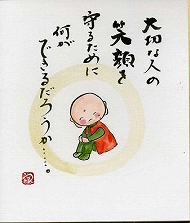 大切な人の
笑顔を
守るために
何が
できるだろうか……。